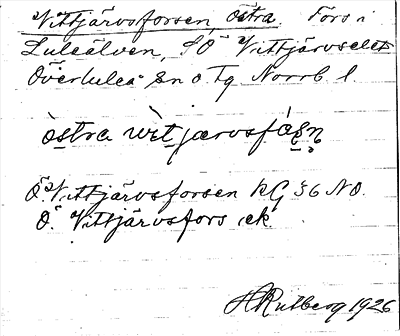 Vittjärvsforsen, östra. Fors i
Luleälven, SÖ Vittjärvselet
Överluleå Sn o. Tg Norrb. l.
östra wìtjærvsfáṣṇ
Ö. Vittjärvsforsen KG 36 NO.
Ö. Vittjärvsfors ek.
HRutberg 1926